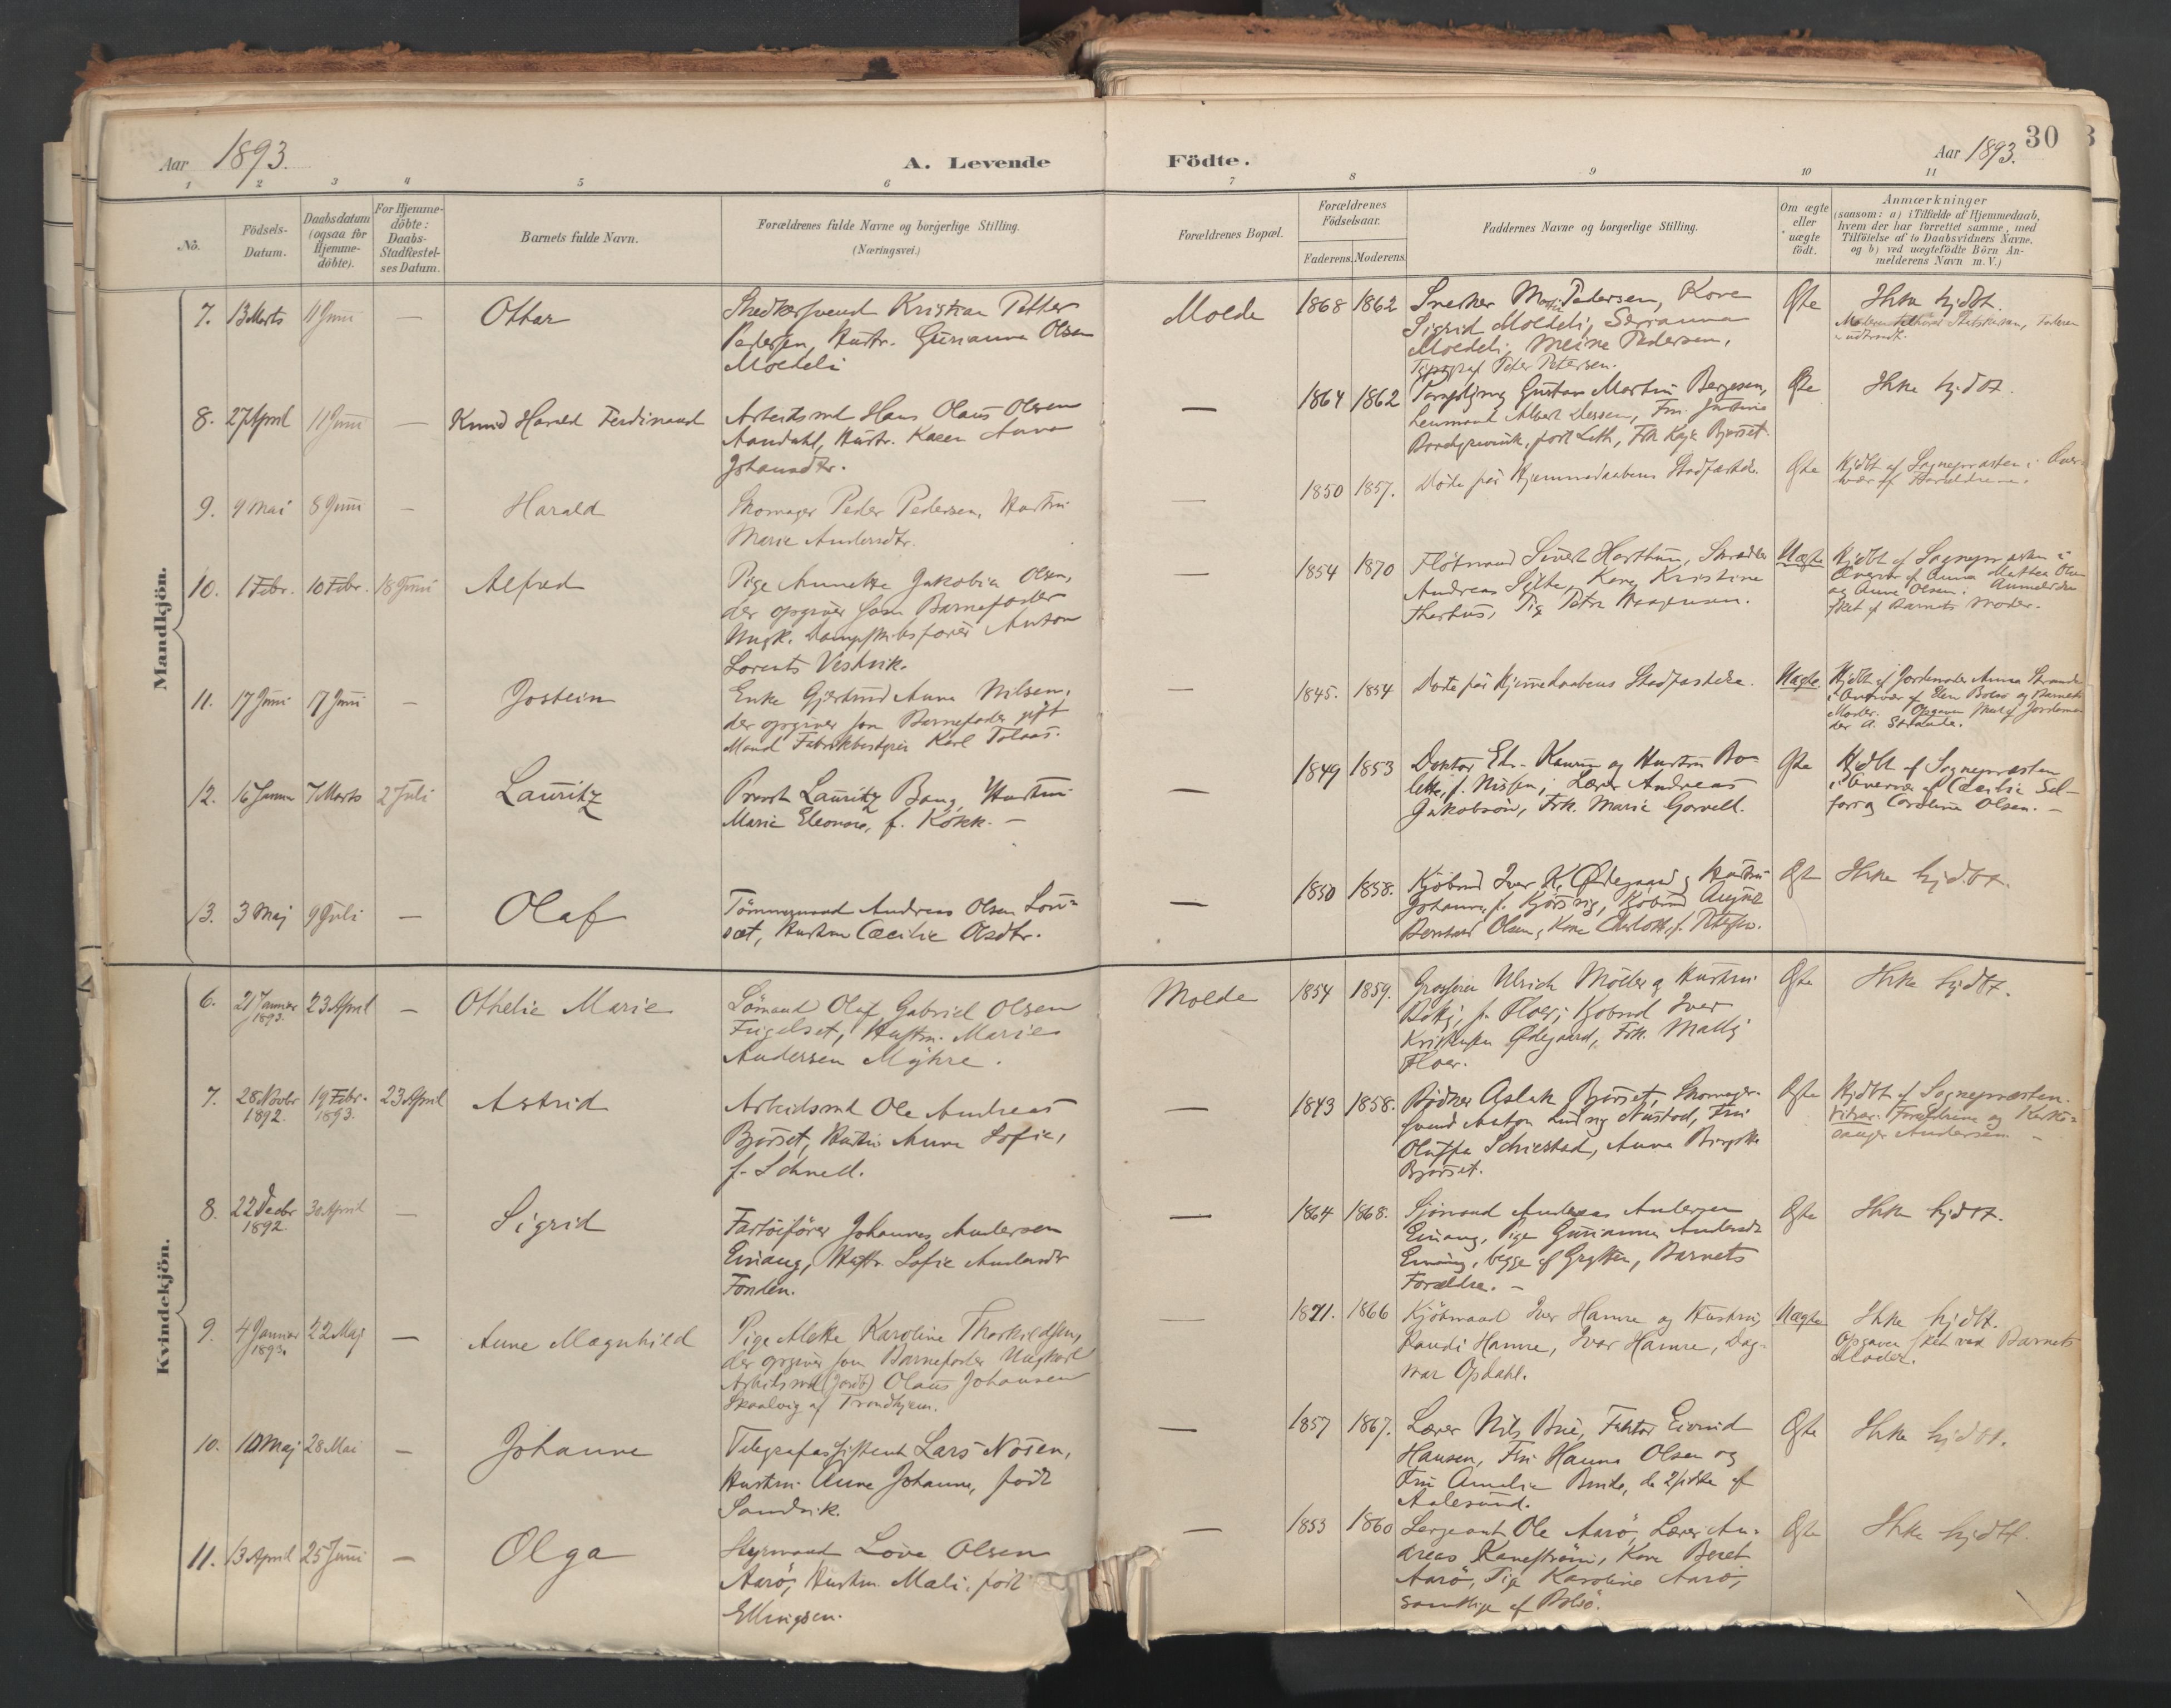 Aar 1893.
A. Levende Födte.
Aar 1893.
30
1 2 3 4 5 6 7 8 9 10 11
No.
Födsels-
Datum.
Daabsdatum
(ogsaa for
Hjemme-
döbte).
For Hjemme-
döbte:
Daabs-
Stadfæstel-
ses Datum.
Barnets fulde Navn.
Forældrenes fulde Navne og borgerlige Stilling.
(Næringsvei.)
Forældrenes Bopæl.
Forældrenes
Födselsaar.
Faderens. Moderens.
Faddernes Navne og borgerlige Stilling.
Om ægte
eller
uægte
födt.
Anmærkninger
(saasom: a) i Tilfælde af Hjemmedaab,
hvem der har forrettet samme, med
Tilföielse af to Daabsvidners Navne.
og b) ved uægtefödte Börn An-
melderens Navn m. V.)
Mandkjön.
7. 13 Marts 11 Juni — Ottar
Snedkersvend Kristian Petter
Pedersen, Hustr. Gurianna Olsen
Moldeli
Molde 1868 1862
Snedker Pedersen, Kone
Sigrid Moldeli, Serianna
Moldeli, Meine Pedersen,
Typograf Peder Petersen.
Ægte
Ikke hjdbt.
8. 27 April 11 Juni — Knud Harald Ferdinand
Arbeidsmd Hans Olaus Olsen
Aandahl, Hustr. Karen Anna
Johansdtr.
— 1864 1862
Gustav Martin Bergesen,
Ægte
Ikke hjdbt.
9. 9 Mai 8 Juni — Harald
Skomager Peder Pedersen, Hustru
Marie Andersdtr.
— 1850 1857.
Döde för Hjemmedaabens Stadfæstelse.
Ægte
Hjdbt af Sognepræsten i Over-
vær af Forældrene.
10. 1 Febr. 10 Febr. 18 Juni Alfred
Pige Annette Jakobia Olsen,
der opgiver som Barnefader
Ungk. Dampskibsförer Anton
Lorents Vestvik.
— 1854 1870
Flötmand Sivert Harthun, Skrædder
Andreas Sylte, Kone Kristine
Uægte
Hjdbt af Sognepræsten i
Overvær af Anna Mathea Olsen
og Anne Olsen. Anmeldelsen
sket af Barnets Moder.
11. 17 Juni 17 Juni — Jostein
Enke Gjertrud Anna Nilsen,
der opgiver som Barnefader gift
Mand Fabrikbestyrer Karl Tolaas.
— 1845. 1854
Döde för Hjemmedaabens Stadfæstelse.
Uægte.
Hjdbt af Jordemoder Anna Strande
i Overvær af Elen Bolsö og Barnets
Moder. Opgaven sked af Jordemo-
der A. Strande.
12. 16 Januar 7 Marts 2 Juli Lauritz
Provst Lauritz Bang, Hustru
Marie Eleonore, f. Kokk. —
— 1849 1853
Doktor Edv. Kaurin og Hustru Bo-
lette, f. Nissen, Lærer Andreas
Jakobsön, Frk. Marie Gorvell.
Ægte
Hjdbt af Sognepræsten
i Overvær af Cæcilie Sel-
for og Caroline Olsen. —
13. 3 Maj 9 Juli — Olaf
Tömmermand Andreas Olsen Lön-
sæt, Hustru Cæcilie Olsdtr.
— 1850 1858.
Kjöbmd Iver K. Ödegaard og Hustru
Johanna, f. Kjörsvig, Kjöbmd August
Bernhard Olsen, Kone Charlotte, f. Petersen.
Ægte
Ikke hjdbt.
Kvindekjön.
6. 21 Januar
1893. 23 April — Othelie Marie
Sömand Olaf Gabriel Olsen
Fugelset, Hustru Marie
Andersen Myhre.
Molde 1854 1859.
Grosserer Ulrich Möller og Hustru
f. Floer, Kjöbmd Iver
Kristensen Ödegaard, Frk. Mally
Floer.
Ægte
Ikke hjdbt.
7. 28 Novbr
1892. 19 Febr.
1893. 23 April Astrid
Arbeidsmd Ole Andreas
Bjorset, Hustru Anna Sofie,
f. Schnell.
— 1843 1858.
Bödker Aslak Bjorset, Skomager-
svend Anton Ludvig Nustad, Fru
Oluffa Schiestad, Anna Birgitte
Bjorset.
Ægte
Hjdbt af Sognepræsten.
Vitner: Forældrene og Kirke-
sanger Andersen. —
8. 22 Decbr
1892. 30 April — Sigrid
Fartöiförer Johannes Andersen
Einang, Hustr. Sofie Andersdtr
Fonden.
— 1864 1868.
Sjömand Andreas Andersen
Einang, Pige Gurianna Andersdtr
Einang, begge af Grytten, Barnets
Forældre. —
Ægte
Ikke hjdbt.
9. 4 Januar
1893. 22 Maj — Anne Magnhild
Pige Alette Karoline Thorkildsen,
der opgiver som Barnefader Ungkarl
Arbeidsmd (Jordb) Olaus Johansen
Skaalvig af Trondhjem.
— 1871. 1866
Kjöbmand Iver Hamre og Hustru
Randi Hamre, Ivar Hamre, Dag-
mar Opdahl.
Uægte
Ikke hjdbt.
Opgaven sket ved Barnets
Moder.
10. 10 Maj 28 Mai — Johanne
Telegrafassistent Lars Nösen,
Hustru Anne Johanne, född
Sandvik.
— 1857 1867.
Lærer Nils Bue, Faktor Eivind
Hansen, Fru Hanna Olsen og
Fru Amalie, de 2 sidste af
Aalesund.
Ægte
Ikke hjdbt.
11. 13 April 25 Juni — Olga
Styrmand Love Olsen
Aarö, Hustru Mali, född
Ellingsen.
— 1853 1860
Sergeant Ole Aarö, Lærer An-
dreas Kaneström, Kone Beret
Aarö, Pige Karoline Aarö,
samtlige af Bolsö.
Ægte
Ikke hjdbt.